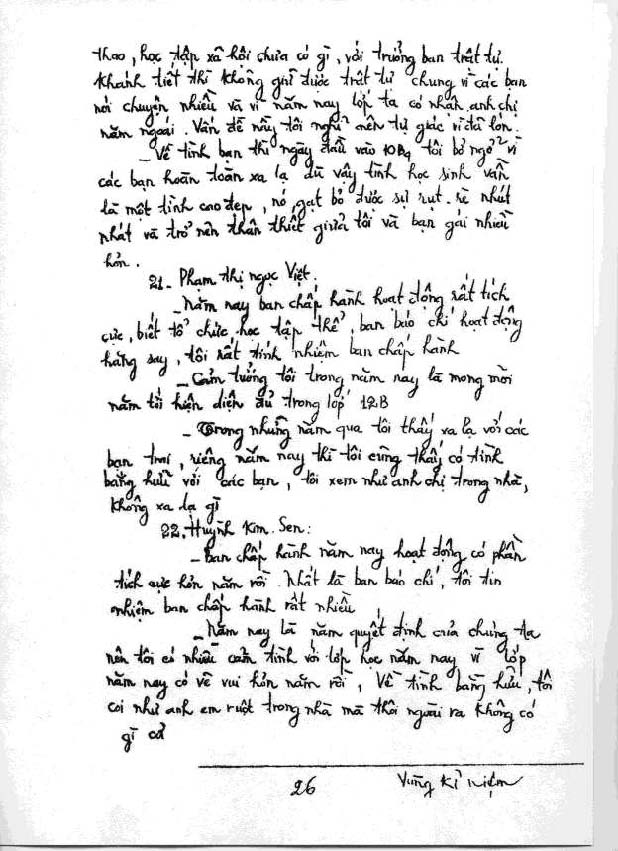 thao, học tập xã hội chưa có gì, với trưởng ban trật tự.
Khánh tiết thì không giữ được trật tự chung vì các bạn
nói chuyện nhiều và vì năm nay lớp ta có nhận anh chị
năm ngoái. Vấn đề này tôi nghĩ nên tự giác vì đã lớn.
_ Về tình bạn thì ngày đầu vào 10B4 tôi bỡ ngỡ vì
các bạn hoàn toàn xa lạ dù vậy tình học sinh vẫn
là một tình cao đẹp, nó gạt bỏ được sự rụt rè nhút
nhát và trở nên thân thiết giữa tôi và bạn gái nhiều
hơn.
21_ Phạm thị ngọc Việt.
_ Năm nay ban chấp hành hoạt động rất tích
cực, biết tổ chức học tập thể, ban báo chí hoạt động
hăng say, tôi rất tính nhiệm ban chấp hành
_ Cảm tưởng tôi trong năm nay là mong mỏi
năm tới hiện diện đủ trong lớp 12B
_ Trong những năm qua tôi thấy xa lạ với các
bạn trai, riêng năm nay thì tôi cũng thấy có tình
bằng hữu với các bạn, tôi xem như anh chị trong nhà,
không xa lạ gì
22. Huỳnh Kim Sen:
_ Ban chấp hành năm nay hoạt động có phần
tích cực hơn năm rồi. Nhất là ban báo chí, tôi tín
nhiệm ban chấp hành rất nhiều
_ Năm nay là năm quyết định của chúng ta
nên tôi có nhiều cảm tình với lớp học năm nay vì lớp
năm nay có vẻ vui hơn năm rồi, Về tình bằng hữu, tôi
coi như anh em ruột trong nhà mà thôi ngoài ra không có
gì cả
26 Vùng kỉ niệm